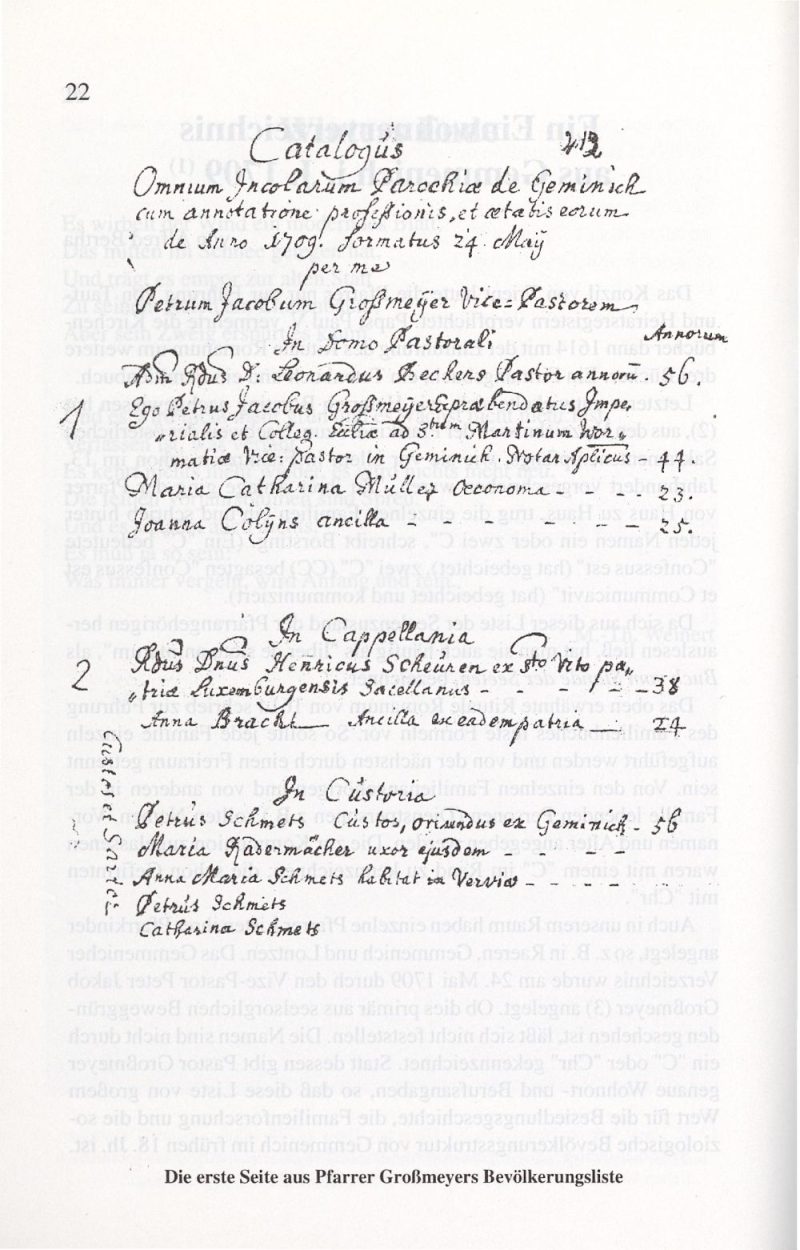 22
Catalogus
Omnium Incolarum Parochiæ de Geminich
cum annotatione professionis, et ætatis eorum
de Anno 1709. formatus 24. Maÿ
per me
Petrum Jacobum Großmeÿer Vice-Pastorem
In Domo Pastorali
Annorum
Adm Rdus D: Leonardus Beckers Pastor annorū 56.
1 Ego Petrus Jacobus Großmeÿer Expræbendatus Impe„
„rialis et Colleg. Eccliæ ad Stum Martinum Wor„
matiæ Vice: pastor in Geminich. Notar Aplicus - 44.
Maria Catharina Müller Oeconoma - - - - 23.
Joanna Colÿns ancilla - - - - - - - 25.
In Cappellania
2 Rdus Dnus Henricus Scheuren ex Sto Vito pa„
„triæ Luxemburgensis Sacellanus - - - - - - 38
Anna Bracht Ancilla ex eadem patria - 24
In Custoria
Petrus Schmets Custos, oriundus ex Geminich - 56
Maria Radermächer uxor ejusdem - - - - -
Anna Maria Schmets habitat in Verviæ - - - - -
Petrus Schmets
Catharina Schmets
Custos et
Die erste Seite aus Pfarrer Großmeyers Bevölkerungsliste